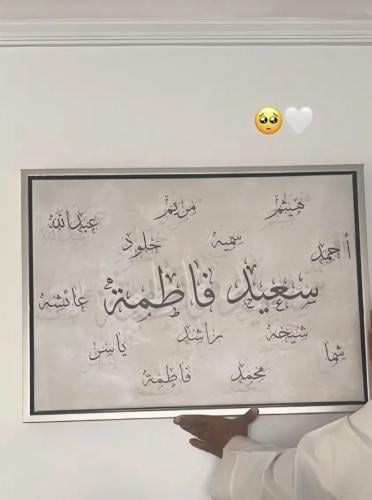 هيثم مريم عبدالله
أحمد سمية خلود
سعيد فاطمة عائشة
شيخة راشد ياسر
شما محمد فاطمة